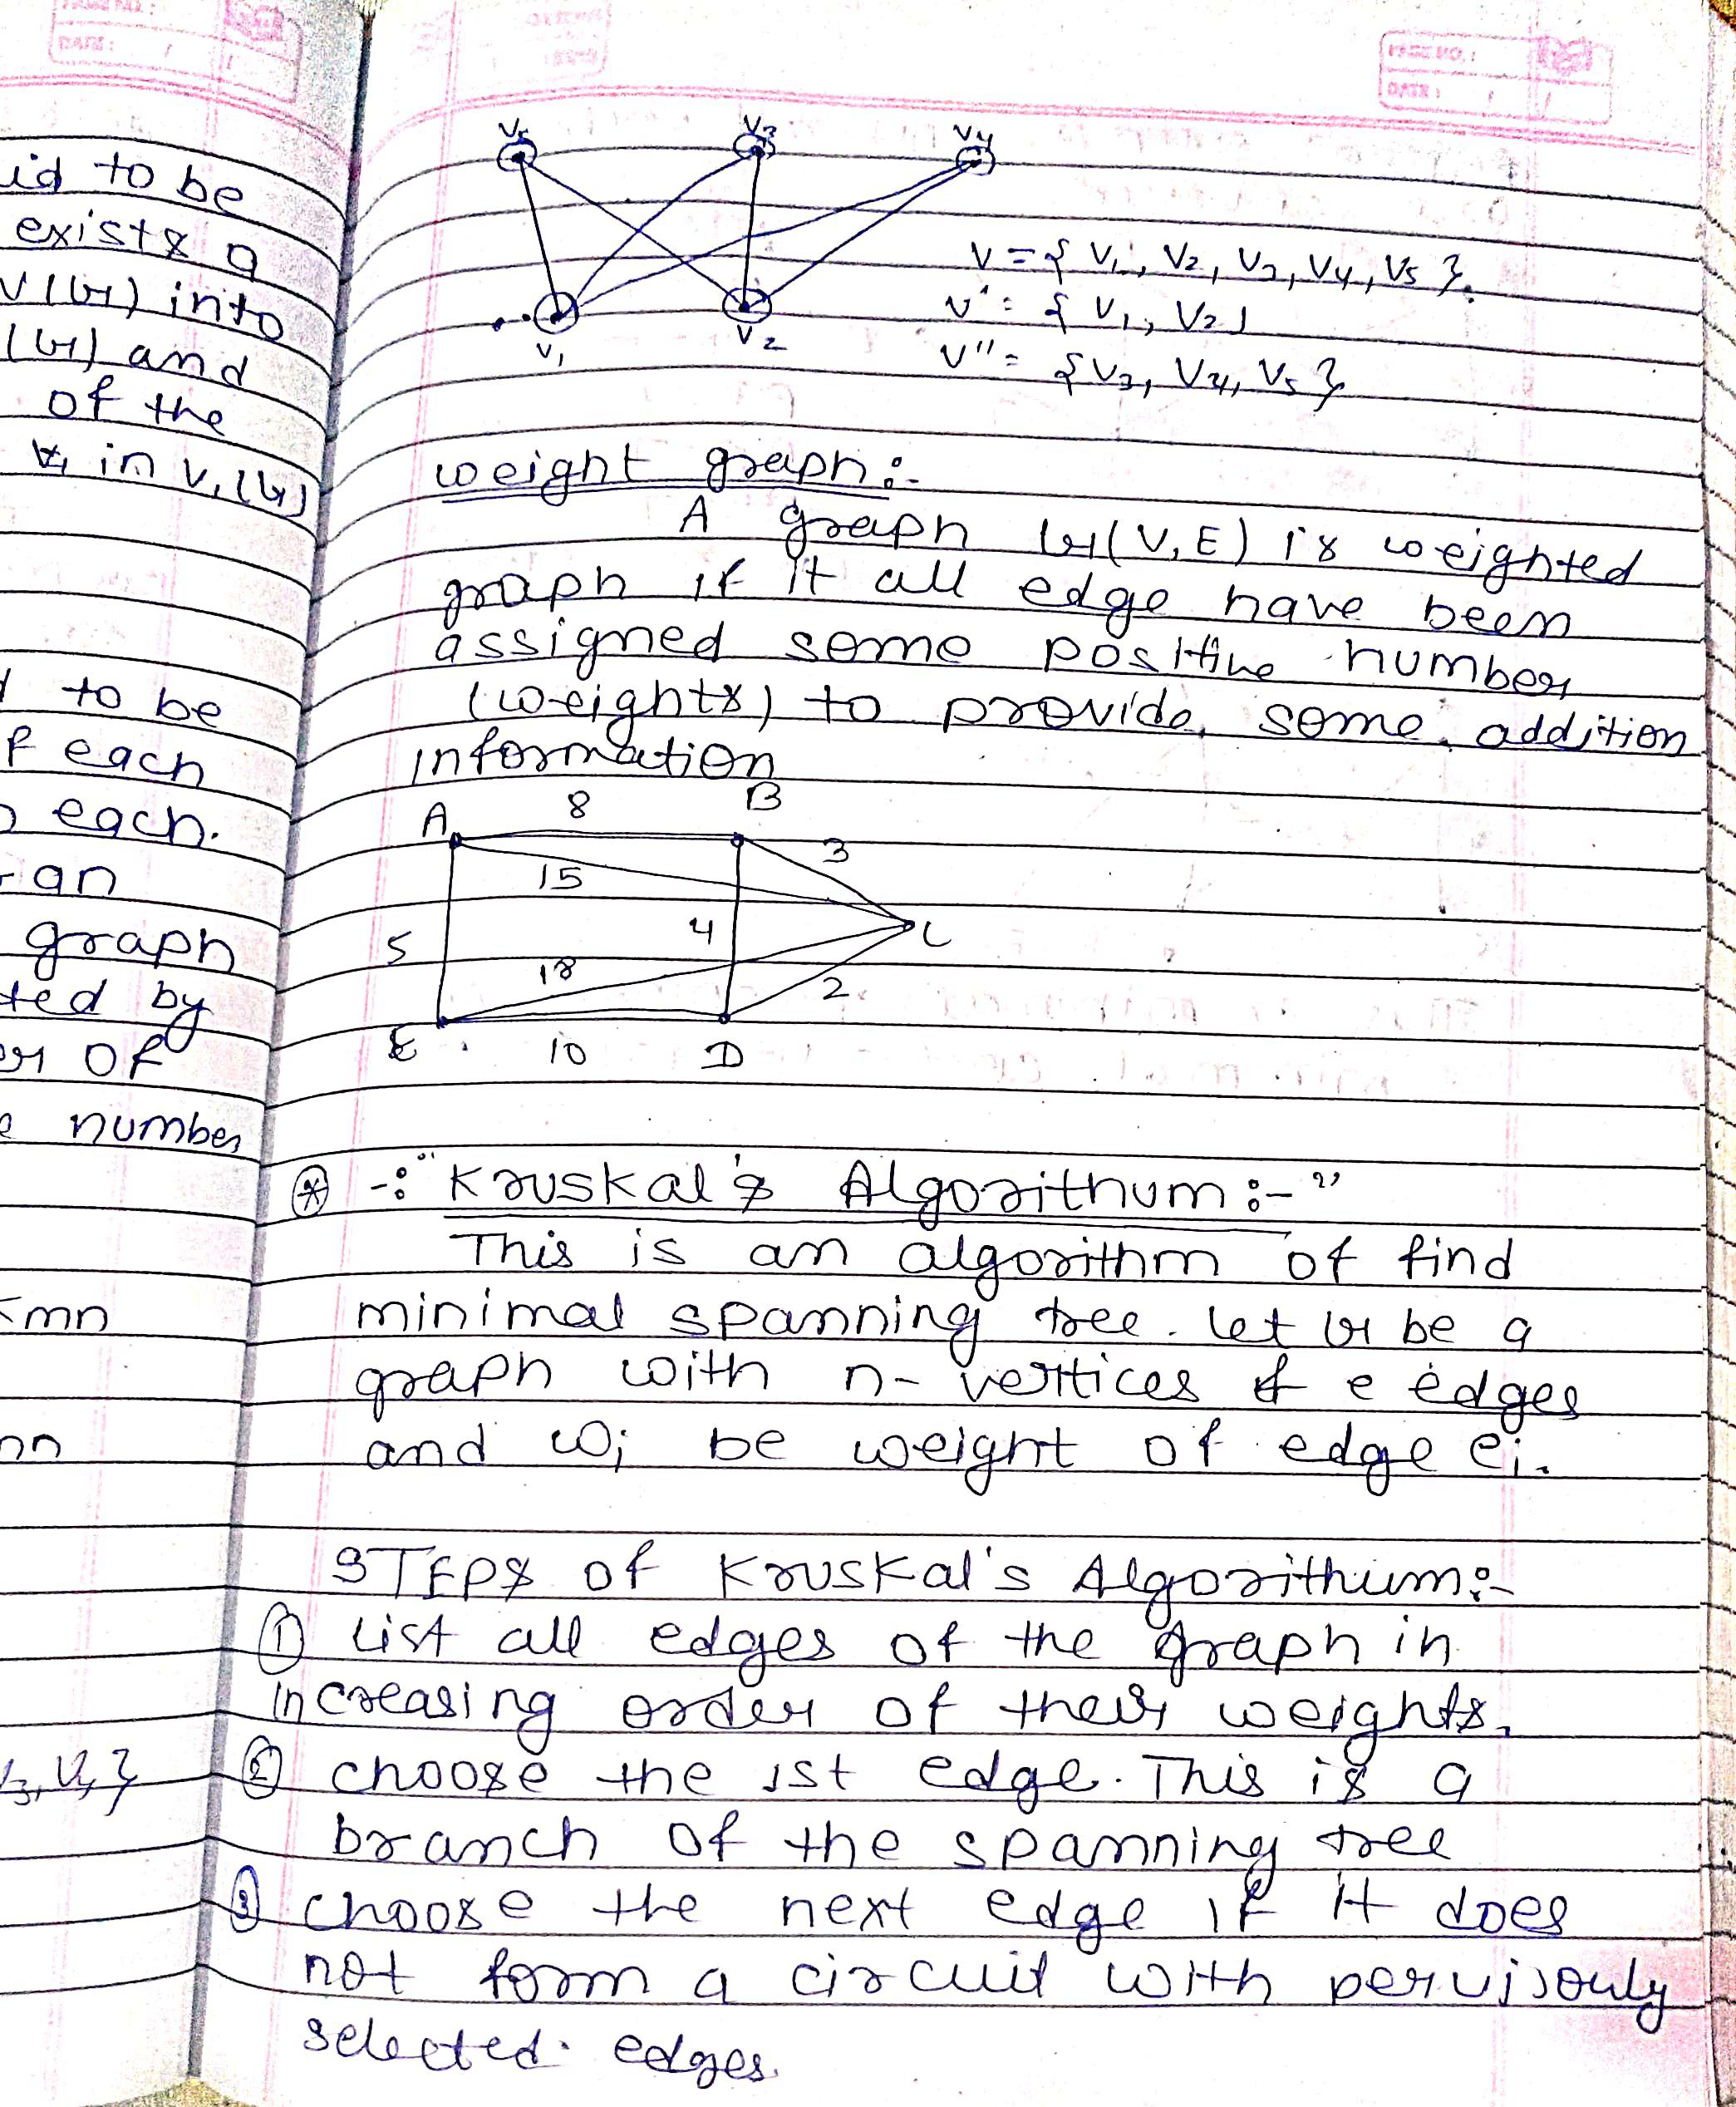 id to be
exists a
V(G) into
(G) and
of the
in V1(G)
to be
f each
each.
an
graph
ted by
er of
number
kmn
V5 V3 V4
V1 V2
V = { V1, V2, V3, V4, V5 }.
V' = { V1, V2 }
V'' = { V3, V4, V5 }
weight graph :-
A graph G(V, E) is weighted
graph if it all edge have been
assigned some positive number
(weights) to provide some addition
information
A 8 B
3
15
5 4 C
18
2
E 10 D
-: "Kruskal's Algorithum :- "
This is an algorithm of find
minimal spanning tree. let G be a
graph with n- vertices & e edges
and wi be weight of edge ei.
STEPS of Kruskal's Algorithum :-
① List all edges of the graph in
increasing order of their weights.
② choose the 1st edge. This is a
branch of the spanning tree
③ choose the next edge if it does
not form a circuit with pervisouly
selected edges.